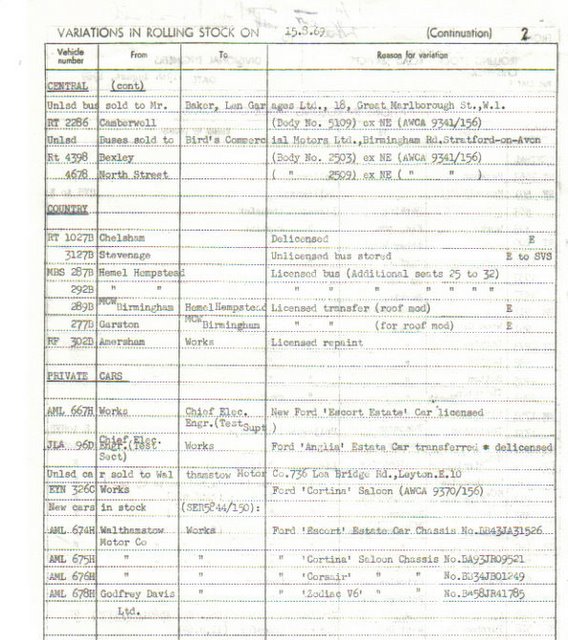 VARIATIONS IN ROLLING STOCK ON 15.8.69 (Continuation) 2
Vehicle number From To Reason for variation
CENTRAL (cont)
Unlsd bus sold to Mr. Baker, Len Garages Ltd., 18, Great Marlborough St.,W.1.
RT 2286 Camberwell (Body No. 5109) ex NE (AWCA 9341/156)
Unlsd Buses sold to Bird's Commercial Motors Ltd.,Birmingham Rd.Stratford-on-Avon
Rt 4398 Bexley (Body No. 2503) ex NE (AWCA 9341/156)
4678 North Street ( " 2509) ex NE ( " " )
COUNTRY
RT 1027B Chelsham Delicensed E
3127B Stevenage Unlicensed bus stored E to SVS
MBS 287B Hemel Hempstead Licensed bus (Additional seats 25 to 32)
292B " " " " " " " "
289B MCW Birmingham Hemel Hempstead Licensed transfer (roof mod) E
277B Garston MCW Birmingham " " (for roof mod) E
RF 302B Amersham Works Licensed repaint
PRIVATE CARS
AML 667H Works Chief Elec. Engr.(Test Supt) New Ford 'Escort Estate' Car licensed
JLA 96D Chief Elec. Engr.(Test Sect) Works Ford 'Anglia' Estate Car transferred * delicensed
Unlsd car sold to Walthamstow Motor Co.736 Lea Bridge Rd.,Leyton.E.10
EYN 326C Works Ford 'Cortina' Saloon (AWCA 9370/156)
New cars in stock (SER5244/150):
AML 674H Walthamstow Motor Co Works Ford 'Escort' Estate Car Chassis No.BB43JA31526
AML 675H " " " 'Cortina' Saloon Chassis No.BA93JR09521
AML 676H " " " 'Corsair' " " No.BB34JB01249
AML 678H Godfrey Davis Ltd. " " 'Zodiac V6' " " No.BA58JR41785